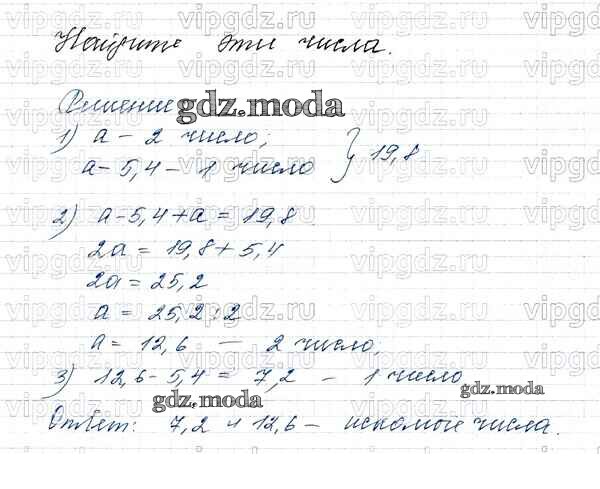 Найдите эти числа.
Решение
gdz.moda
1) a - 2 число;
a - 5,4 - 1 число } 19,8
2) a - 5,4 + a = 19,8
2a = 19,8 + 5,4
2a = 25,2
a = 25,2 : 2
a = 12,6 — 2 число;
3) 12,6 - 5,4 = 7,2 — 1 число
gdz.moda
gdz.moda
Ответ: 7,2 и 12,6 — искомые числа.
vipgdz.ru vipgdz.ru vipgdz.ru